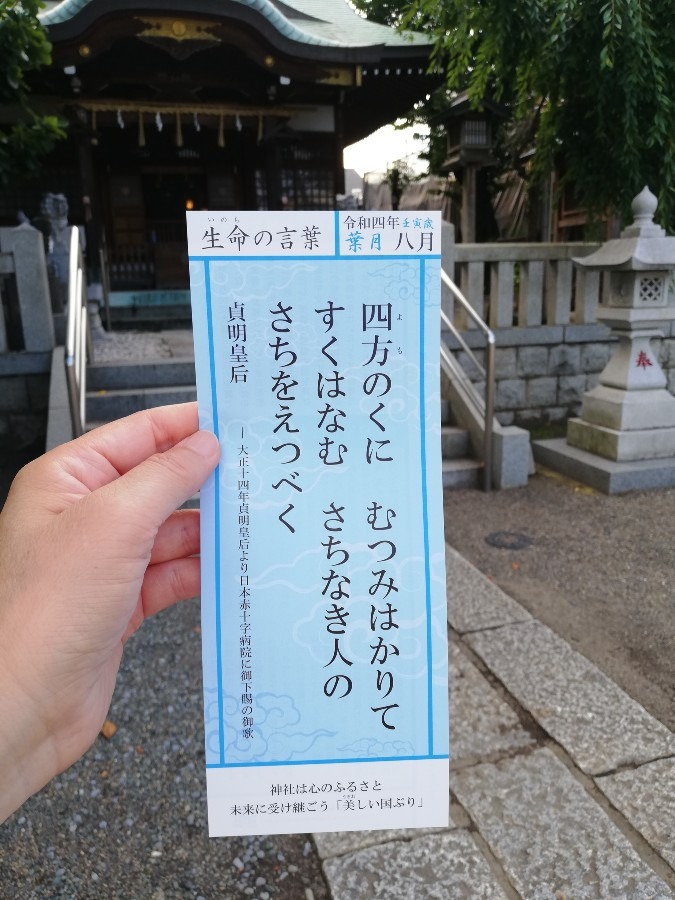 生命の言葉
いのち
令和四年壬寅歳
葉月 八月
四方のくに むつみはかりて
よも
すくはなむ さちなき人の
さちをえつべく
貞明皇后
― 大正十四年貞明皇后より日本赤十字病院に御下賜の御歌
神社は心のふるさと
未来に受け継ごう「美しい国ぶり」
奉